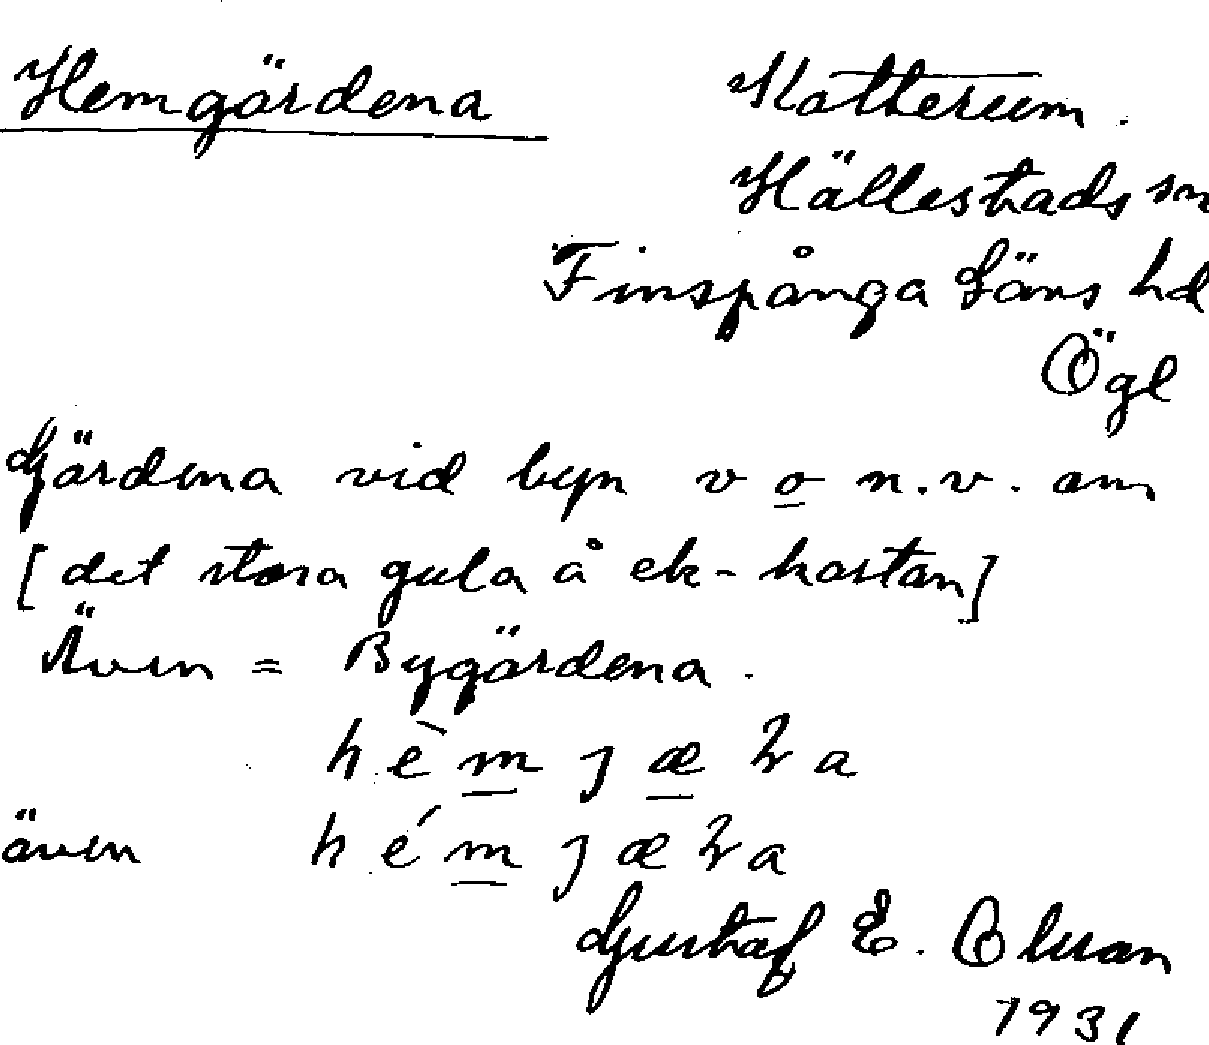 Hemgärdena
Katterum.
Hällestads sn
Finspånga läns hd
Ögl
Gärdena vid byn v o n.v. om
[det stora gula å ek-kartan]
Även = Bygärdena.
hèmjæɽa
även hémjæɽa
Gustaf E. Olsson
1931